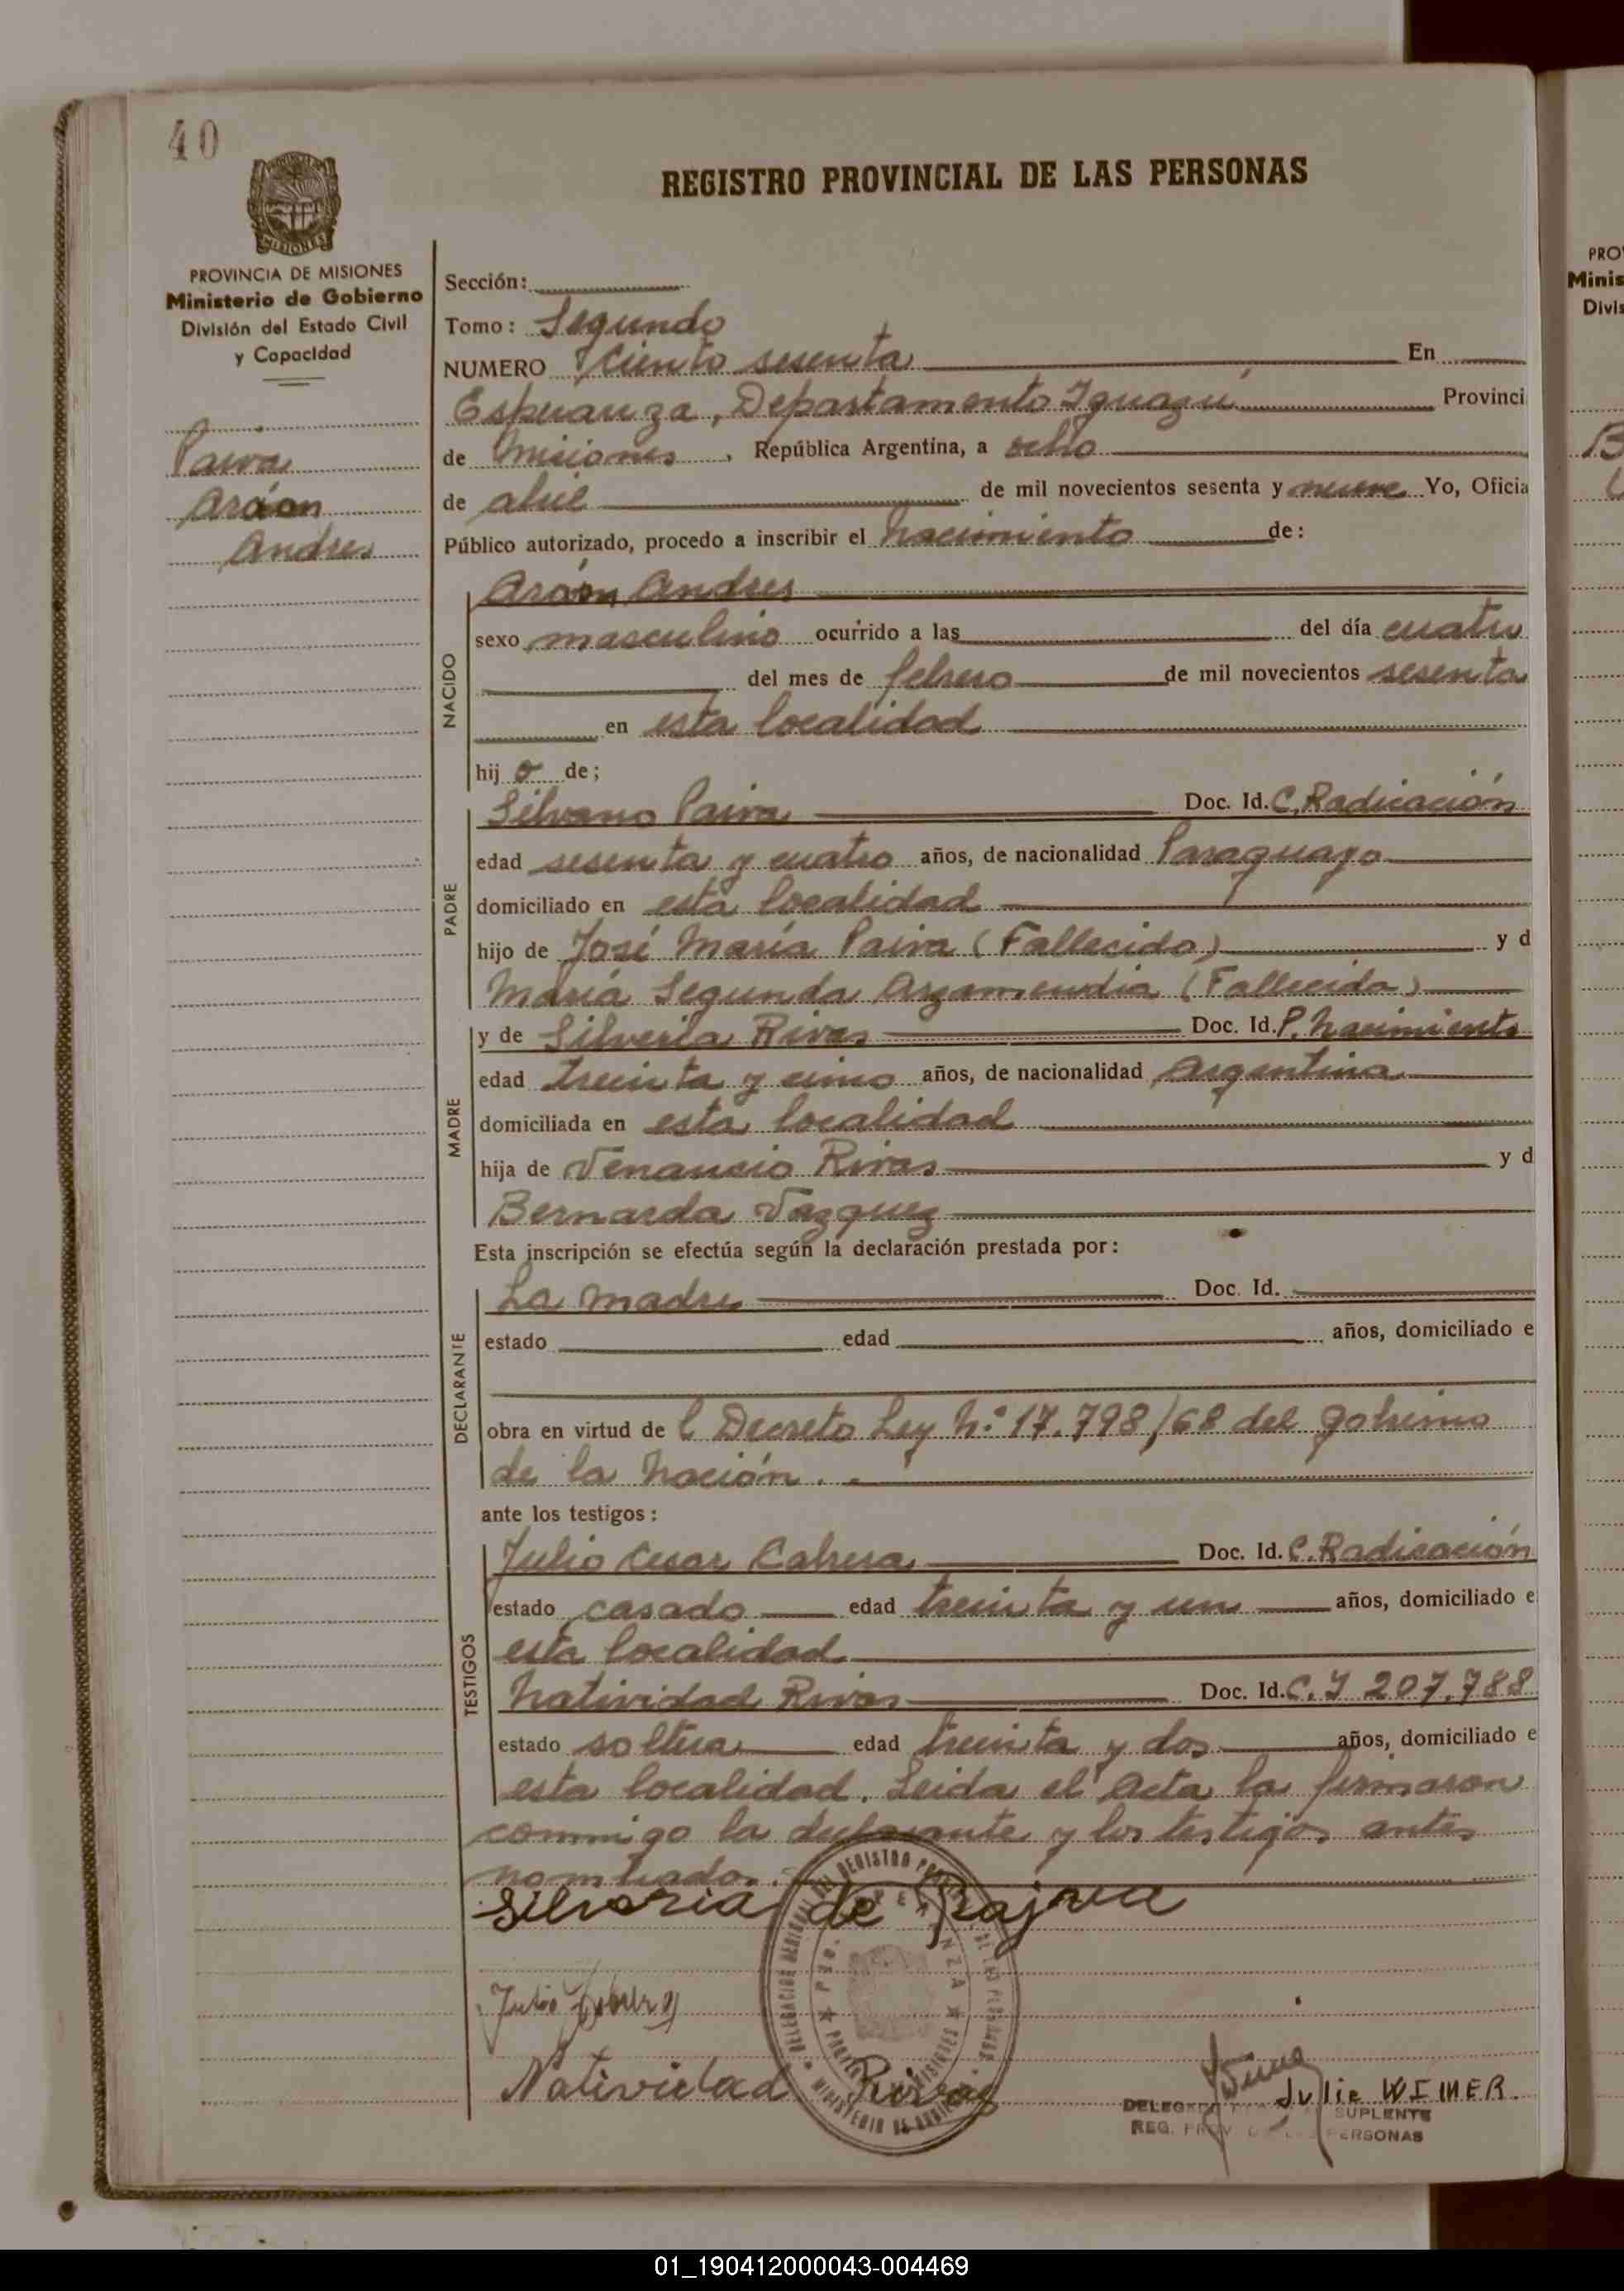 40
REGISTRO PROVINCIAL DE LAS PERSONAS
MISIONES
PROVINCIA DE MISIONES
Ministerio de Gobierno
División del Estado Civil
y Capacidad
Paiva
Aráon
Andres
Sección:
Tomo: Segundo
NUMERO Ciento sesenta En
Esperanza, Departamento Iguazú Provinci
de Misiones, República Argentina, a ocho
de abril de mil novecientos sesenta y nueve Yo, Oficia
Público autorizado, procedo a inscribir el Nacimiento de:
NACIDO
Aráon Andres
sexo masculino ocurrido a las del día cuatro
del mes de febrero de mil novecientos sesenta
en esta localidad
hijo de;
PADRE
Silvano Paiva Doc. Id. C. Radicación
edad sesenta y cuatro años, de nacionalidad Paraguayo
domiciliado en esta localidad
hijo de José María Paiva (Fallecido) y d
María Segunda Arzamendia (Fallecida)
MADRE
y de Silveria Rivas Doc. Id. P. Nacimiento
edad treinta y cinco años, de nacionalidad Argentina
domiciliada en esta localidad
hija de Venancio Rivas y d
Bernarda Vazquez
Esta inscripción se efectúa según la declaración prestada por:
DECLARANTE
La madre Doc. Id.
estado edad años, domiciliado e
obra en virtud de l Decreto Ley N.º 17.798/68 del gobierno
de la Nación.
ante los testigos:
TESTIGOS
Julio Cesar Cabrera Doc. Id. C. Radicación
estado casado edad treinta y un años, domiciliado e
esta localidad
Natividad Rivas Doc. Id. C. I 207.788
estado soltera edad treinta y dos años, domiciliado e
esta localidad. Leida el acta la firmaron
conmigo la declarante y los testigos antes
nombrados.
Silvoria de Pajva
Julio Cabrera
Natividad Rivas
Julio WIMER
DELEGADO SUPLENTE
REG. PROV. DE LAS PERSONAS
PRO
Minis
Divis
01_190412000043-004469